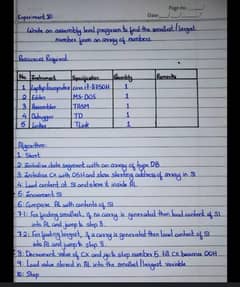 Page no.
Date
Experiment 10
Write an assembly level program to find the smallest / largest
number from an array of numbers.
Resources Required
No. Instrument Specification Quantity Remarks
1 Laptop/computer 1
2 Editor MS-DOS 1
3 Assembler TASM 1
4 Debugger TD 1
5 Linker TLink 1
Algorithm:
1: Start
2: Initialize data segment with an array of type DB
3: Initialize CX with 05H and store starting address of array in SI
4: Load content at SI and store it inside AL
5: Increment SI
6: Compare AL with contents of SI
7.1: For finding smallest, if no carry is generated then load content of SI
into AL and jump to step 8
7.2: For finding largest, if a carry is generated then load content of SI
into AL and jump to step 8
8: Decrement value of CX and go to step number 5 till CX becomes 00H
9: Load value stored in AL into the smallest/largest variable
10: Stop